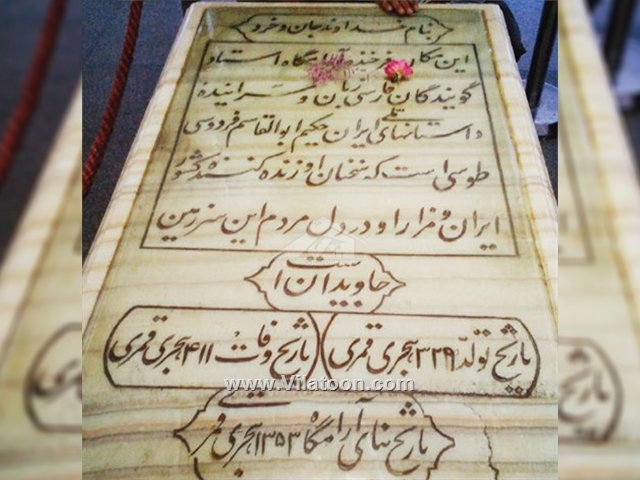 بنام خداوند جان و خرد
این مکان فرخنده آرامگاه استاد
گویندگان فارسی زبان و سراینده
داستانهای ملی ایران حکیم ابوالقاسم فردوسی
طوسی است که سخنان او زنده کننده کشور
ایران و مزار او در دل مردم این سرزمین
جاویدان است
تاریخ تولد ۳۲۹ هجری قمری
تاریخ وفات ۴۱۱ هجری قمری
تاریخ بنای آرامگاه ۱۳۵۳ هجری قمری
www.Vilatoon.com